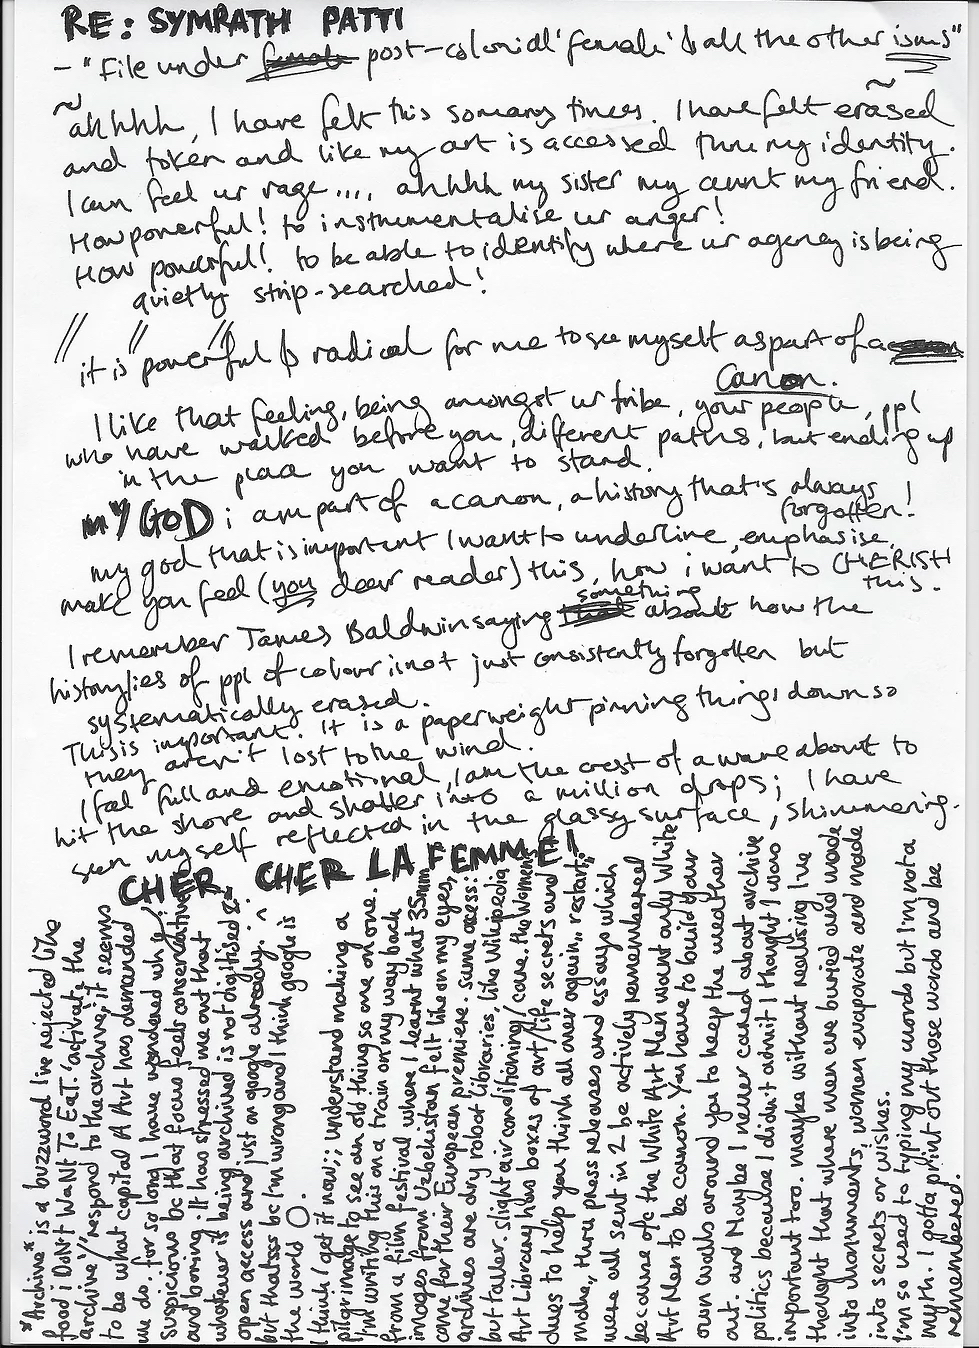 RE: SYMRATH PATTI
- "File under female post-colonial 'female' & all the other isms"
~ahhhh, I have felt this so many times. I have felt erased
and token and like my art is accessed thru my identity.
I can feel ur rage...., ahhhh my sister my aunt my friend.
How powerful! to instrumentalise ur anger!
How powerful! to be able to identify where ur agency is being
quietly strip-searched!
// it is "powerful & radical for me to see myself as part of a
Canon.
I like that feeling, being amongst ur tribe, your people, ppl
who have walked before you, different paths, but ending up
in the place you want to stand.
MY GOD i am part of a canon, a history that's always
forgotten!
my god that is important I want to underline, emphasise,
make you feel (you dear reader) this, how i want to CHERISH
this.
something
I remember James Baldwin saying that about how the
history/ies of ppl of colour is not just consistently forgotten but
systematically erased.
This is important. It is a paperweight pinning things down so
they aren't lost to the wind.
I feel full and emotional, I am the crest of a wave about to
hit the shore and shatter into a million drops; I have
seen myself reflected in the glassy surface, shimmering.
CHER, CHER LA FEMME!
*Archive* is a buzzword I've rejected like
food i DoNt WaNt To EaT. 'activate the
archive'/ respond to the archive, it seems
to be what capital A Art has demanded
we do. for so long I have wondered why/
suspicious bc that focus feels conservative
and boring. It has stressed me out that
whatever is being archived is not digitised &
open access and just on google already. ^
but thatsss bc I'm wrong and I think google is
the world O.
I think I get it now;; understand making a
pilgrimage to see an old thing so one on one.
I'm writing this on a train on my way back
from a film festival where I learnt what 35mm
images from Uzbekistan felt like on my eyes,
came for their European premiere. same access:
archives are dry robot libraries, like Wikipedia
but taller. slight air conditioning/ care. the Women's
Art Library has boxes of art/life secrets and
clues to help you think all over again,, restart,,
make,, thru press releases and essays which
were all sent in 2 be actively remembered
because ofc the White Art Men want only White
Art Men to be cannon. You have to build your
own walls around you to keep the weather
out. and Maybe I never cared about archive
politics because I didn't admit I thought I was
important too. maybe without realising I've
thought that where men are buried and made
into monuments, women evaporate and made
into secrets or wishes.
I'm so used to typing my words but I'm not a
myth. I gotta print out these words and be
remembered.